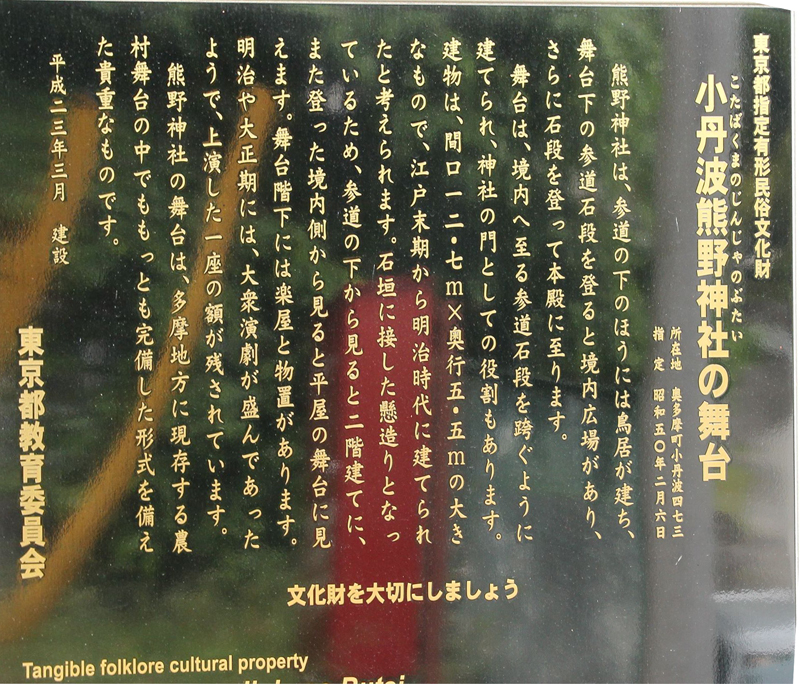 東京都指定有形民俗文化財
こたばくまのじんじゃのぶたい
小丹波熊野神社の舞台
所在地　奥多摩町小丹波四七三
指　定　昭和五〇年二月六日
熊野神社は、参道の下のほうには鳥居が建ち、
舞台下の参道石段を登ると境内広場があり、
さらに石段を登って本殿に至ります。
舞台は、境内へ至る参道石段を跨ぐように
建てられ、神社の門としての役割もあります。
建物は、間口一二・七m×奥行五・五mの大き
なもので、江戸末期から明治時代に建てられ
たと考えられます。石垣に接した懸造りとなっ
ているため、参道の下から見ると二階建てに、
また登った境内側から見ると平屋の舞台に見
えます。舞台階下には楽屋と物置があります。
明治や大正期には、大衆演劇が盛んであった
ようで、上演した一座の額が残されています。
熊野神社の舞台は、多摩地方に現存する農
村舞台の中でももっとも完備した形式を備え
た貴重なものです。
平成二三年三月　建設
東京都教育委員会
文化財を大切にしましょう
Tangible folklore cultural property